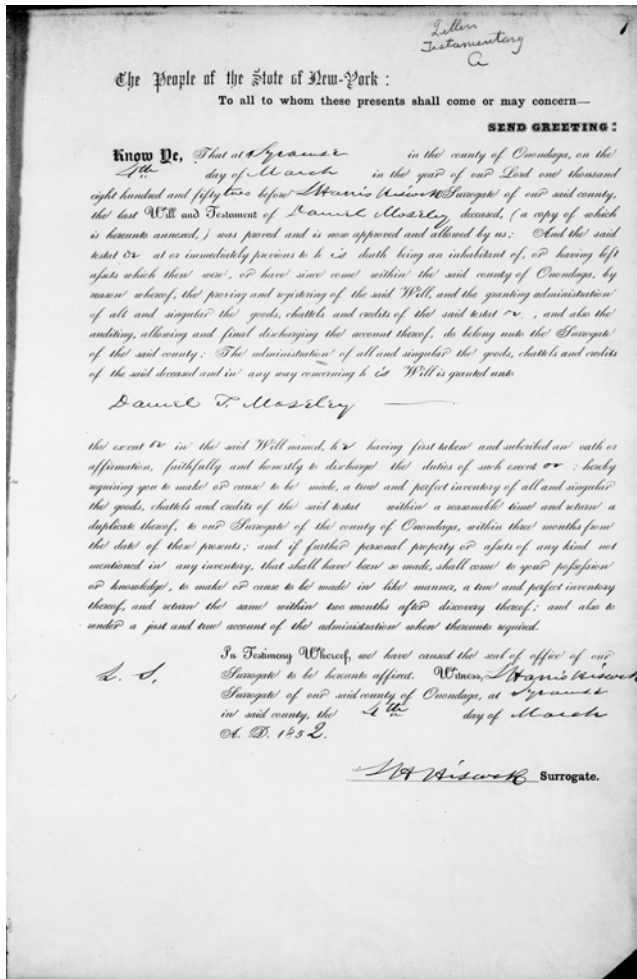 1
Letters
Testamentary
A
The People of the State of New-York:
To all to whom these presents shall come or may concern—
SEND GREETING:
Know Ye, That at Syracuse in the county of Onondaga, on the
4th day of March in the year of our Lord one thousand
eight hundred and fifty two before L Harris Hiscock Surrogate of our said county,
the last Will and Testament of Daniel Moseley deceased, (a copy of which
is hereunto annexed,) was proved and is now approved and allowed by us; And the said
testat or at or immediately previous to h is death being an inhabitant of, or having left
assets which then were, or have since come within the said county of Onondaga, by
reason whereof, the proving and registering of the said Will, and the granting administration
of all and singular the goods, chattels and credits of the said testat or , and also the
auditing, allowing and final discharging the account thereof, do belong unto the Surrogate
of the said county; The administration of all and singular the goods, chattels and credits
of the said deceased and in any way concerning h is Will is granted unto
Daniel T. Moseley
the execut or in the said Will named, he having first taken and subcribed an oath or
affirmation, faithfully and honestly to discharge the duties of such execut or : hereby
requiring you to make or cause to be made, a true and perfect inventory of all and singular
the goods, chattels and credits of the said testat within a reasonable time and return a
duplicate thereof, to our Surrogate of the county of Onondaga, within three months from
the date of these presents; and if further personal property or assets of any kind not
mentioned in any inventory, that shall have been so made, shall come to your possession
or knowledge, to make or cause to be made in like manner, a true and perfect inventory
thereof, and return the same within two months after discovery thereof; and also to
render a just and true account of the administration when thereunto required.
In Testimony Whereof, we have caused the seal of office of our
L. S. Surrogate to be hereunto affixed. Witness, L Harris Hiscock
Surrogate of our said county of Onondaga, at Syracuse
in said county, the 4th day of March
A. D. 1852.
L H Hiscock Surrogate.